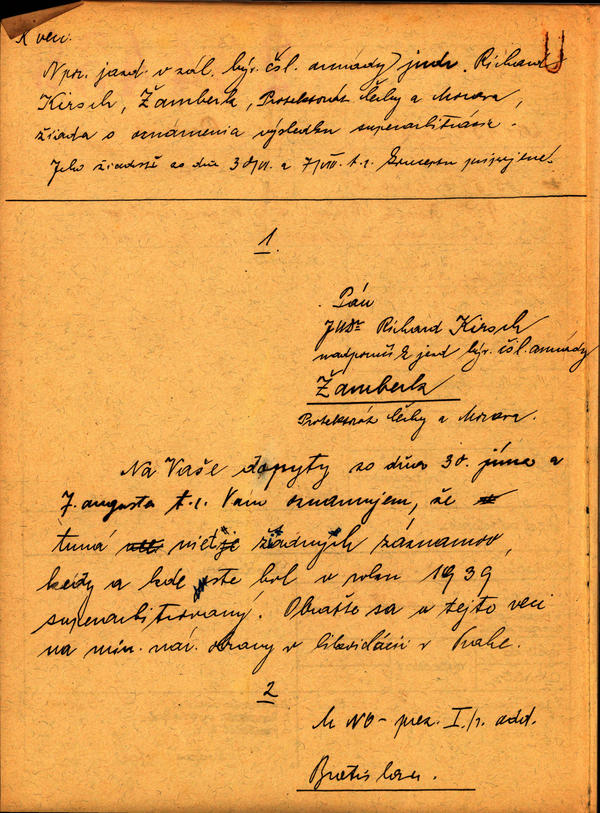 K veci.
Npor. jazd. v zál. býv. čsl. armády judr. Richard
Kirsch, Žamberk, Protektorát Čechy a Morava,
žiada o oznámenia výsledku superarbitrácie.
Jeho žiadosti zo dňa 30/VI. a 7/VIII. t.r.
1
Pán
JUDr Richard Kirsch
nadporučík jazd býv. čsl. armády
Žamberk
Protektorát Čechy a Morava.
Na Vaše dopyty zo dňa 30. júna a
7. augusta t.r. Vám oznamujem, že
tuná niet žiadných záznamov,
kedy a kde ste bol v roku 1939
superarbitrovaný. Obráťte sa v tejto veci
na min. nár. obrany v likvidácii v Prahe.
2
M NO - prez. I./1. odd.
Bratislava.